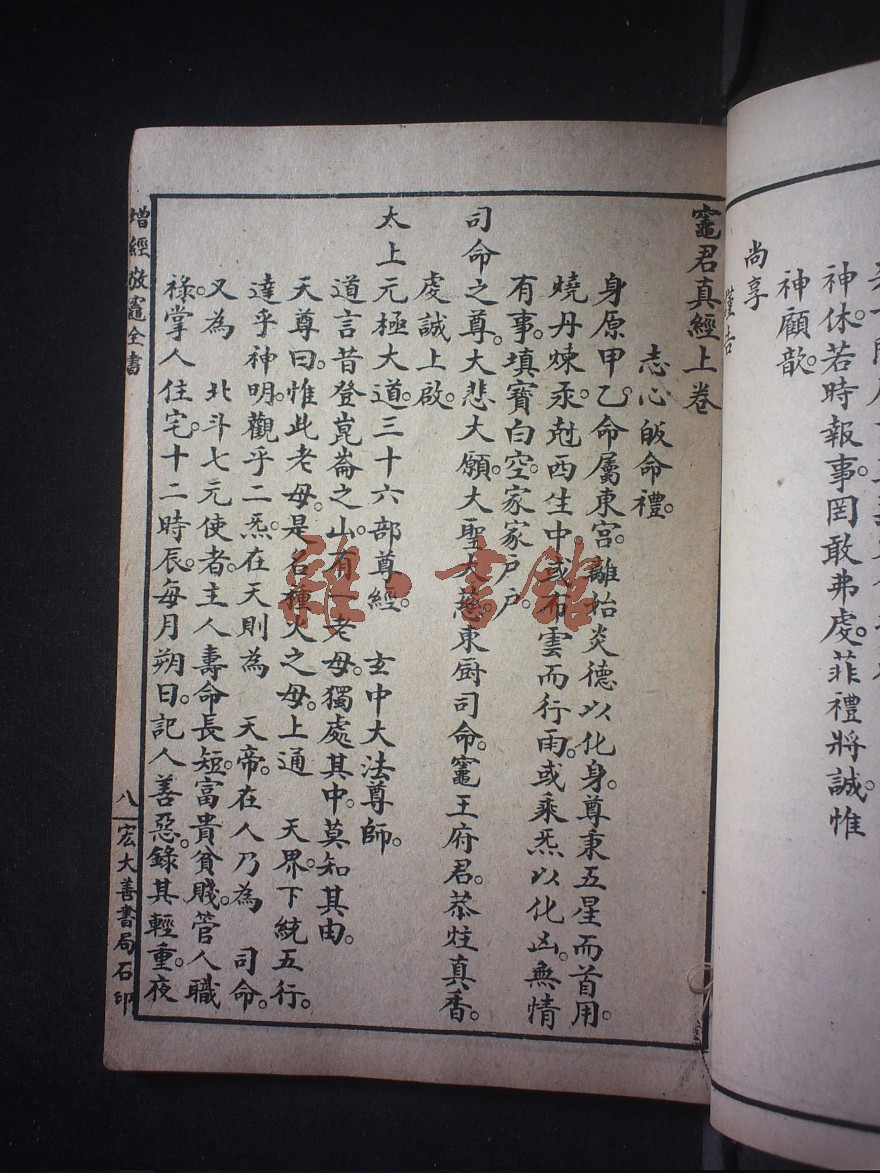 神休。若時報事。罔敢弗虔。菲禮將誠。惟
神顧歆。
尚享
竈君真經上卷
志心皈命禮。
身原甲乙。命屬東宮。離始炎德以化身。尊秉五星而首用。
燒丹煉汞。尅西生中。或布雲而行雨。或乘炁以化凶。無情
有事。填寶白空。家家戶戶。
司命之尊。大悲大願。大聖大慈。東厨司命。竈王府君。恭炷真香。
虔誠上啟。
太上元極大道。三十六部尊經。 玄中大法尊師。
道言昔登崑崙之山。有一老母。獨處其中。莫知其由。
天尊曰。惟此老母。是名種火之母。上通 天界。下統五行。
達乎神明。觀乎二炁。在天則為 天帝。在人乃為 司命。
又為 北斗七元使者。主人壽命長短。富貴貧賤。管人職
祿。掌人住宅。十二時辰。每月朔日。記人善惡。錄其輕重。夜
增經敬竈全書
八
宏大善書局石印
雜·書館